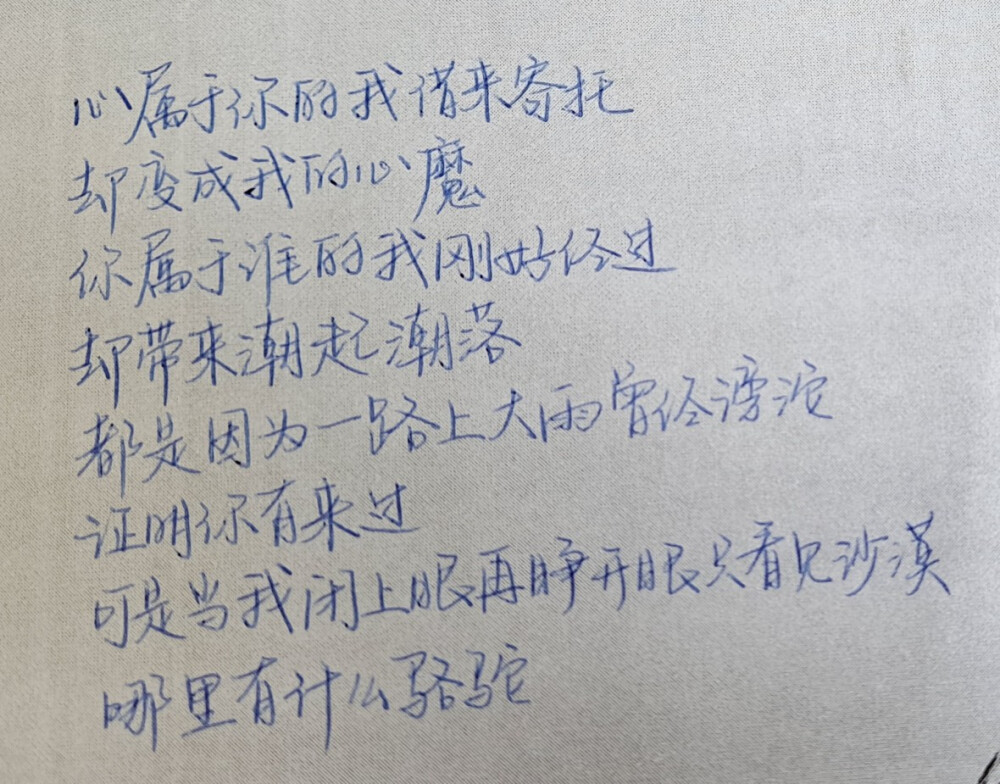 心属于你的我借来寄托
却变成我的心魔
你属于谁的我刚好经过
却带来潮起潮落
都是因为一路上大雨曾经滂沱
证明你有来过
可是当我闭上眼再睁开眼只看见沙漠
哪里有什么骆驼